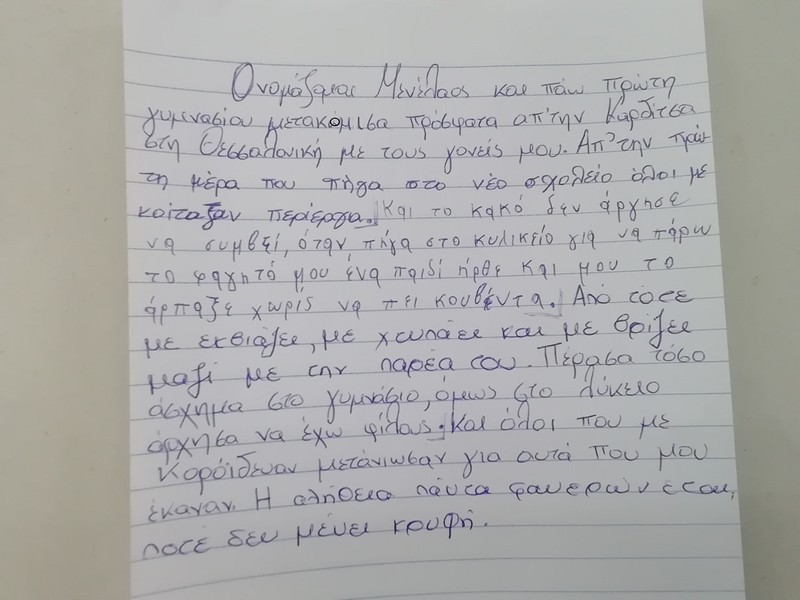 Ονομάζομαι Μενέλαος και πάω πρώτη
γυμνασίου μετακόμισα πρόσφατα απ'την Καρδίτσα
στη Θεσσαλονίκη με τους γονείς μου. Απ'την πρώ-
τη μέρα που πήγα στο νέο σχολείο όλοι με
κοίταξαν περίεργα. Και το κακό δεν άργησε
να συμβεί, όταν πήγα στο κυλικείο για να πάρω
το φαγητό μου ένα παιδί ήρθε και μου το
άρπαξε χωρίς να πει κουβέντα. Από τότε
με εκβιάζει, με χτυπάει και με βρίζει
μαζί με την παρέα του. Πέρασα τόσο
άσχημα στο γυμνάσιο, όμως στο λύκειο
άρχησα να έχω φίλους. Και όλοι που με
κορόιδευαν μετάνιωσαν για αυτά που μου
έκαναν. Η αλήθεια πάντα φανερώνεται,
ποτέ δεν μένει κρυφή.